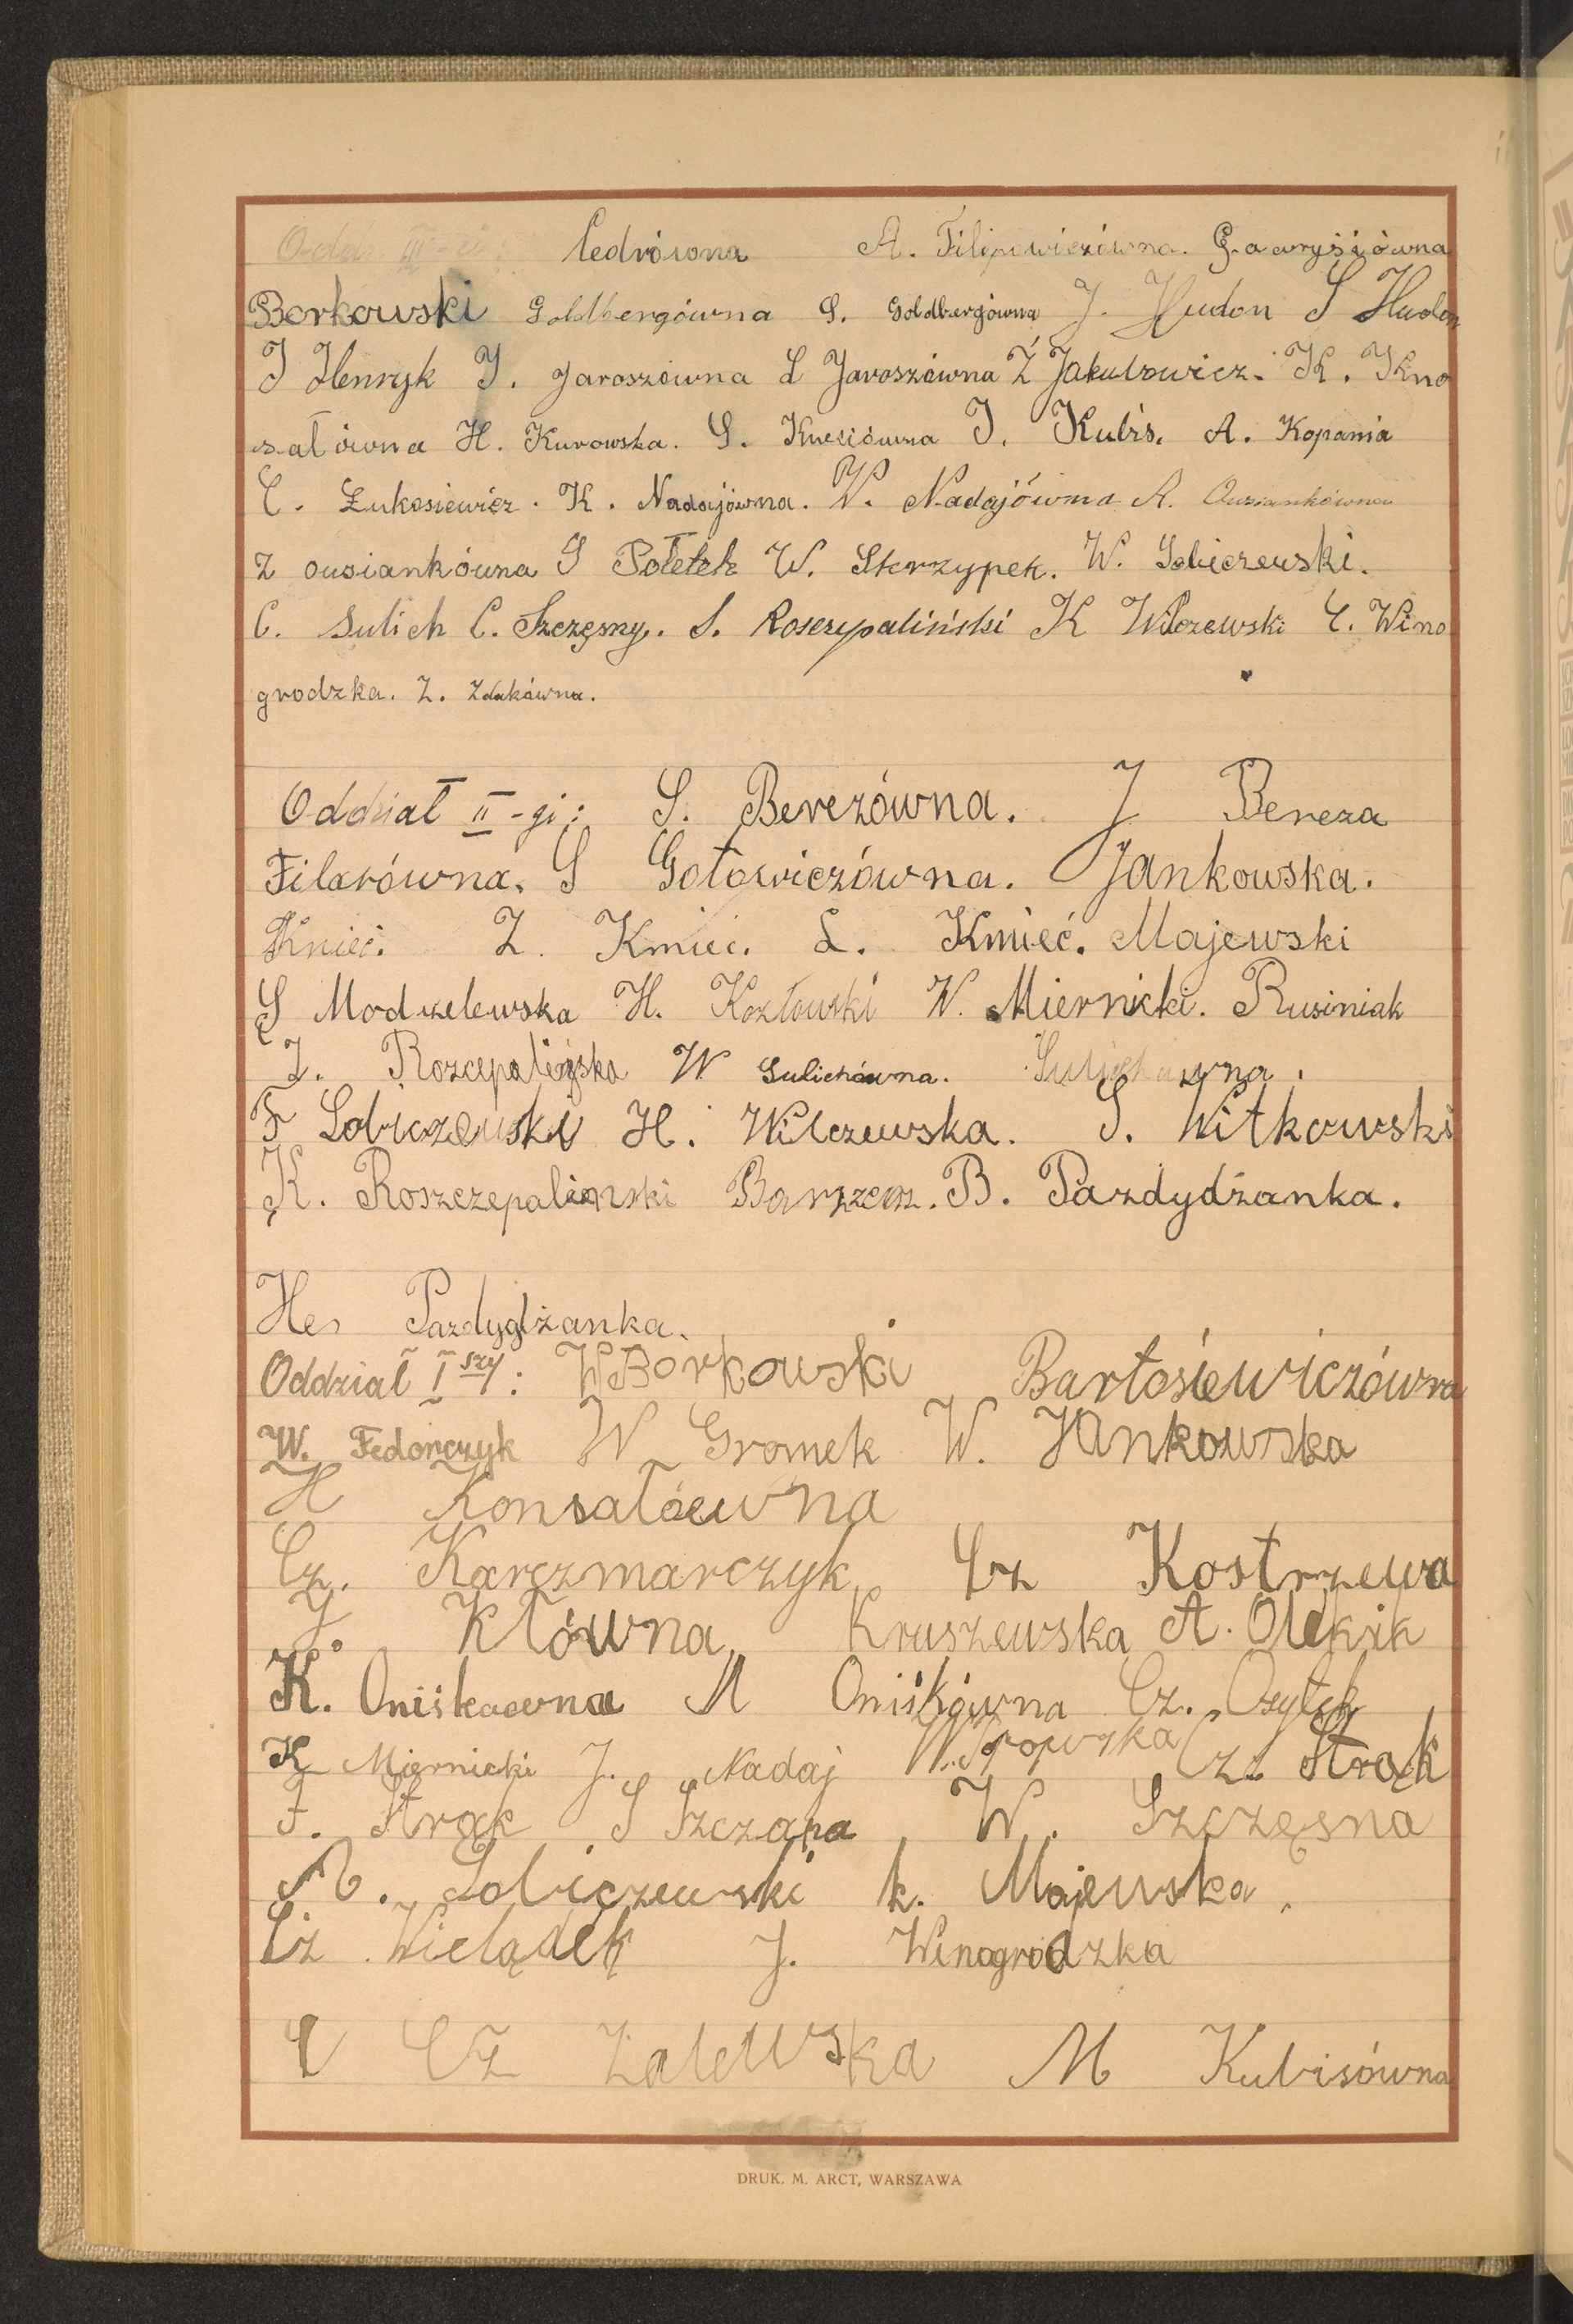 Oddz. III-ci: Cedrówna A. Filipowiczówna. G. awryśiówna
Borkowski Goldbergówna S. Goldbergówna J. Hudon S Hudon
J Henryk J. Jaroszówna L Jaroszówna Z Jakubowicz. K. Kno
sałówna H. Kurowska. S. J. Kubis. A. Kopania
C. Łukasiewicz. K. Nadajówna. W. Nadajówna A. Ousiankówna
Z ousiankówna S Połetek W. Skrzypek. W. Sobiczewski.
C. Sulich C. Szczęsny. S. Roszypaliński K Wilczewski C. Wino
grodzka. Z. Zdakówna.
Oddział II-gi: S. Berezówna. J Bereza
Filarówna. S Gotowiczówna. Jankowska.
Kmieć. Z. Kmieć. L. Kmieć. Majewski
S Modzelewska H. Kozłowski W. Miernicki. Rusiniak
Z. W Sulichówna. Sulichówna.
F Sobiczewski H. Wilczewska. S. Witkowski
K. Roszczepalinski B. Pazdydżanka.
Hes Pazdygdżanka.
Oddział I szy: W Borkowski Bartosiewiczówna
W. Fedorczyk W Gromek W. Jankowska
H Konsatóewna
Cz. Karczmarczyk Cz Kostrzewa
J. Kłówna, Kruszewska A. Oleksik
K. Oniśkaowna M Oniśkówna Cz. Osytek
K Miernicki J. Nadaj W. Cz. Strąk
F. Strąk S Szczapa W. Szczęsna
M. Sobiczewski k. Majewska,
Cz Wielądek J. Winogrodzka
C Cz Zalewska M Kubisówna
DRUK. M. ARCT, WARSZAWA